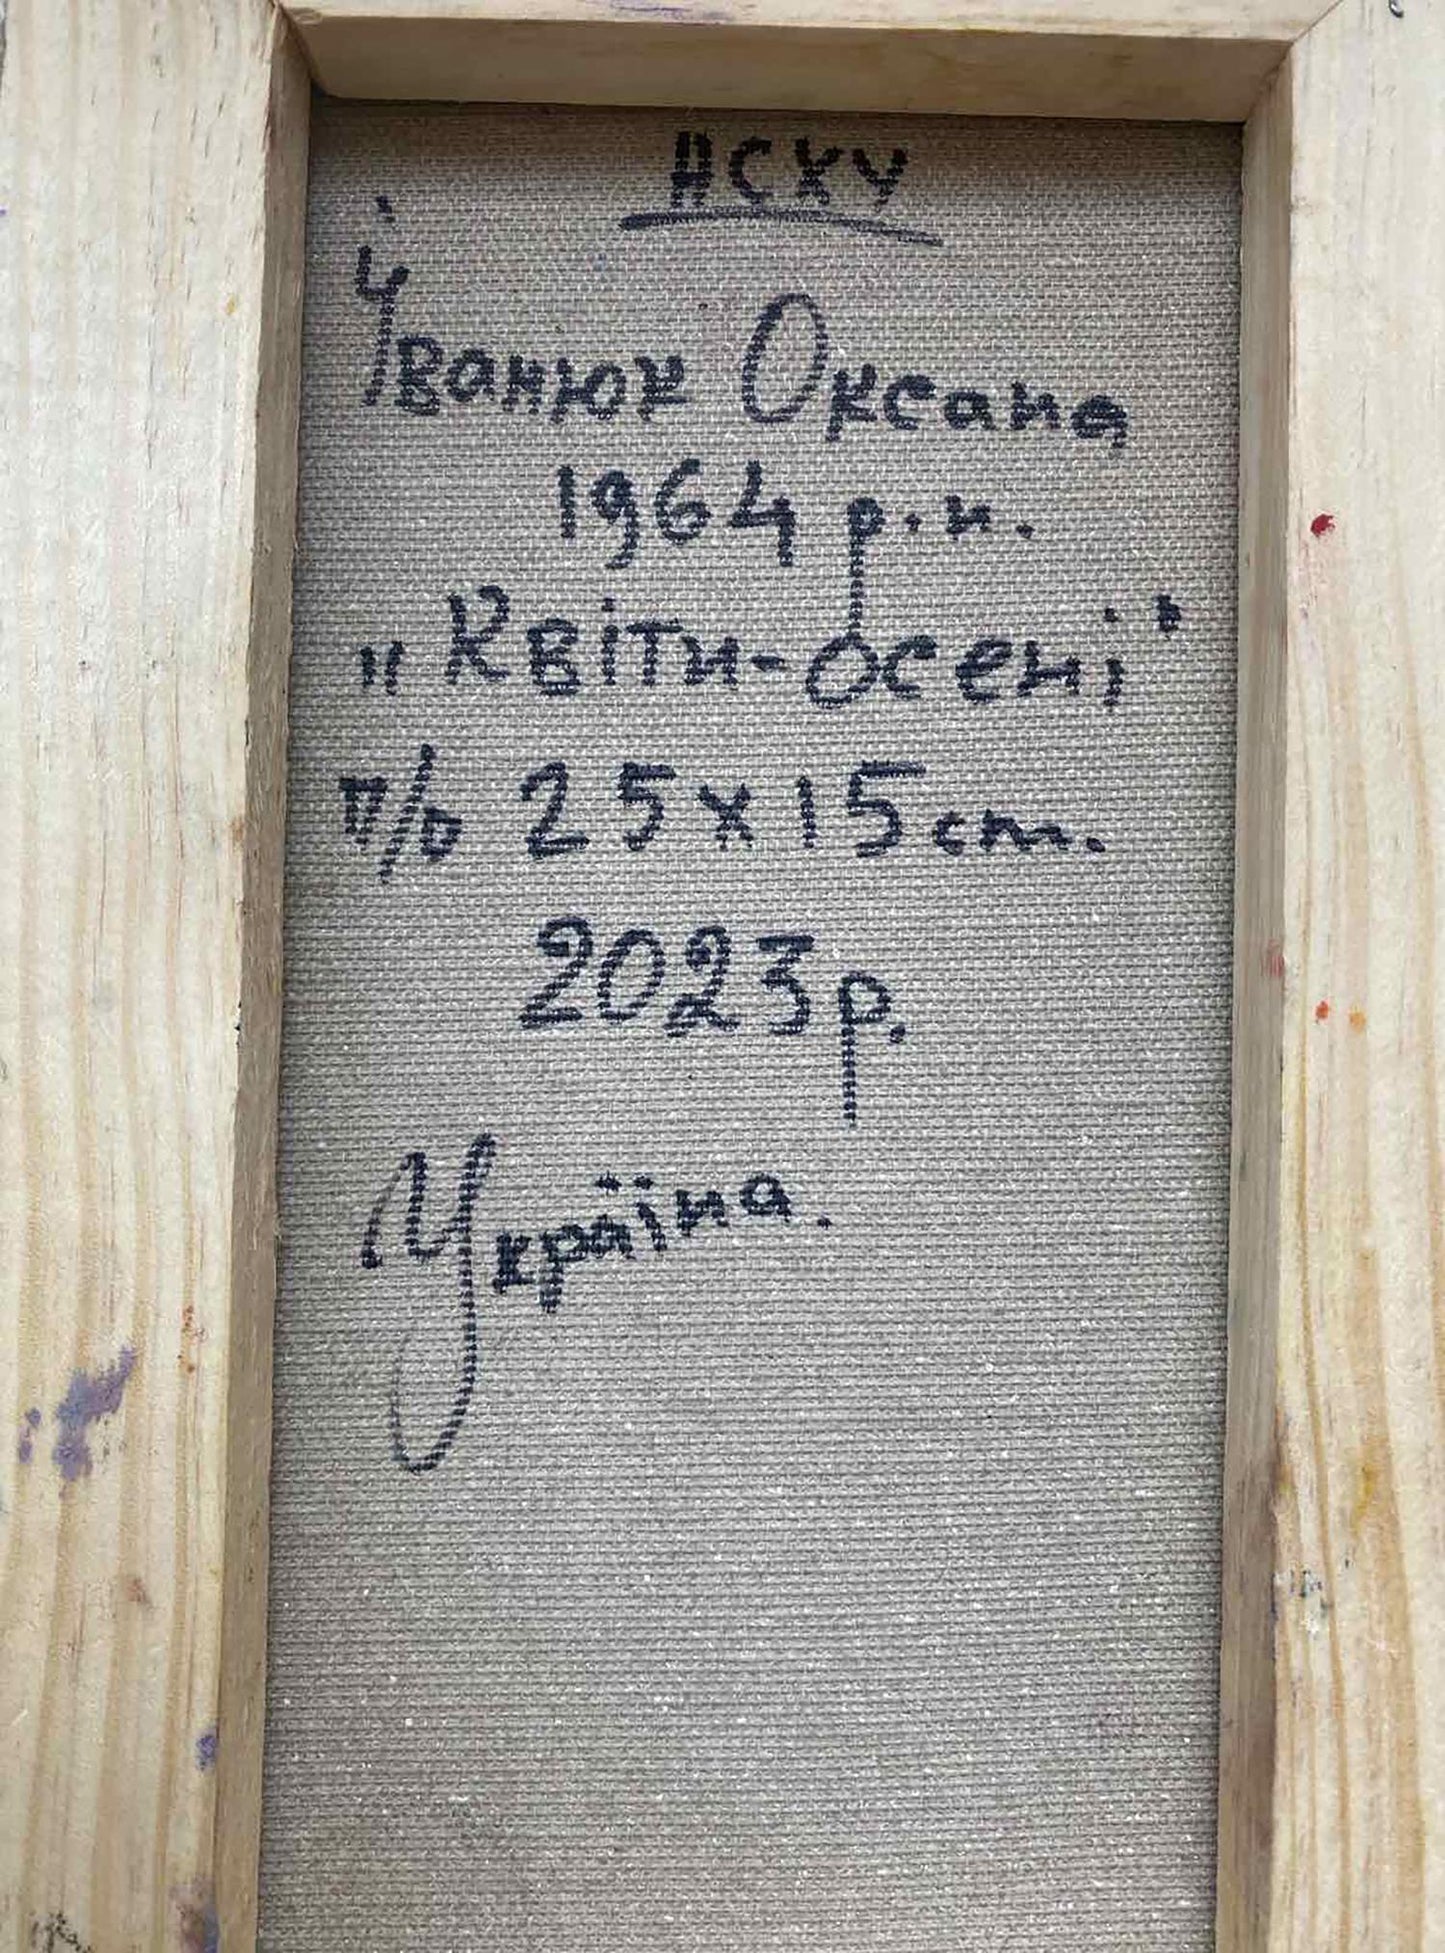 НСХУ
Іванюк Оксана
1964 р.н.
„Квіти-осені"
п/о 25х15 ст.
2023р.
Україна.